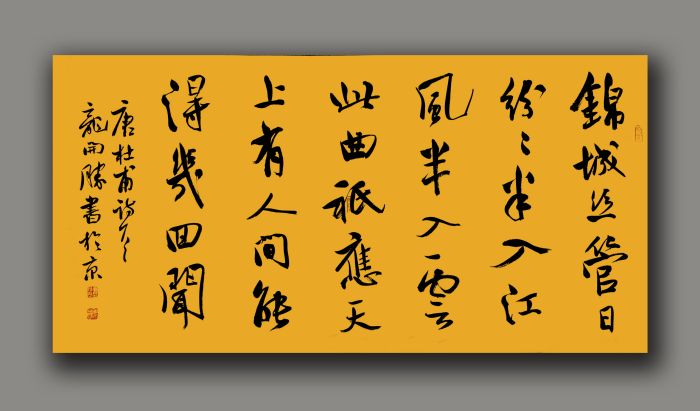 錦城丝管日
紛々半入江
風半入雲
此曲祇應天
上有人間能
得幾回聞
唐杜甫詩
龍開勝書於京